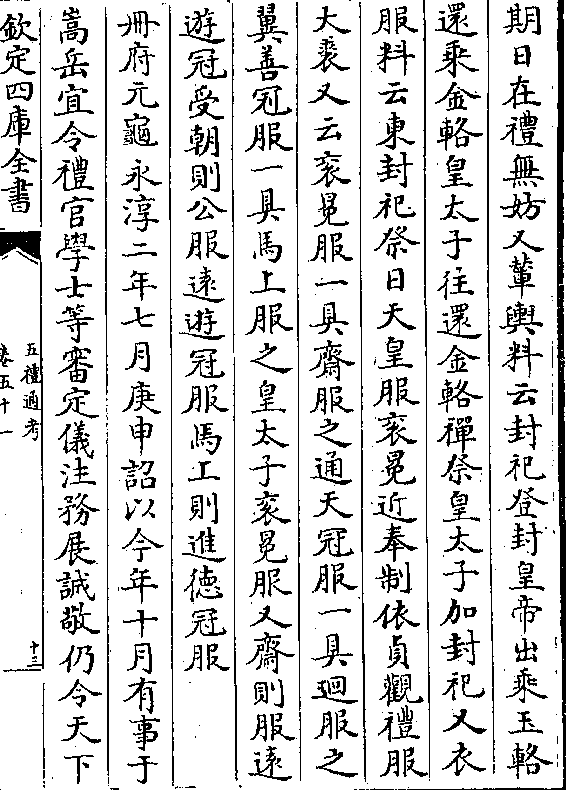 期日在禮無妨又輦輿料云封祀登封皇帝出乘玉輅
還乘金輅皇太子往還金輅禪祭皇太子加封祀又衣
服料云東封祀祭日天皇服衮冕近奉制依貞觀禮服
大裘又云衮冕服一具齋服之通天冠服一具迴服之
翼善冠服一具馬上服之皇太子衮冕服又齋則服逺
遊冠受朝則公服逺遊冠服馬上則進德冠服
冊府元龜永淳二年七月庚申詔以今年十月有事于
嵩岳宜令禮官學士等審定儀注務展誠敬仍令天下
欽定四庫全書
五禮通考
卷五十一
十三